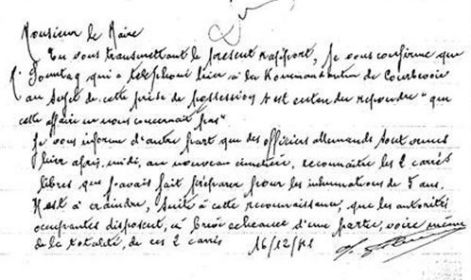 Monsieur le Maire
En vous transmettant le présent rapport, je vous confirme que
Mr Sonntag qui a téléphoné hier à la Kommandantur de Courbevoie
au sujet de cette prise de possession s'est entendu répondre "que
cette affaire ne nous concernait pas"
Je vous informe d'autre part que des officiers allemands sont venus
hier après-midi, au nouveau cimetière, reconnaître les 2 carrés
libres que j'avais fait préparer pour les inhumations de 5 ans.
Il est à craindre, suite à cette reconnaissance, que les autorités
occupantes disposent, à brève échéance d'une partie, voire même
de la totalité, de ces 2 carrés 16/12/41